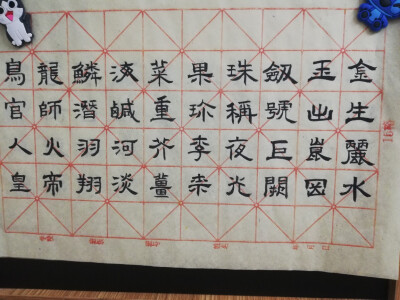 金生麗水
玉出崑岡
劔號巨闕
珠稱夜光
果珎李柰
菜重芥薑
海鹹河淡
鱗潛羽翔
龍師火帝
鳥官人皇